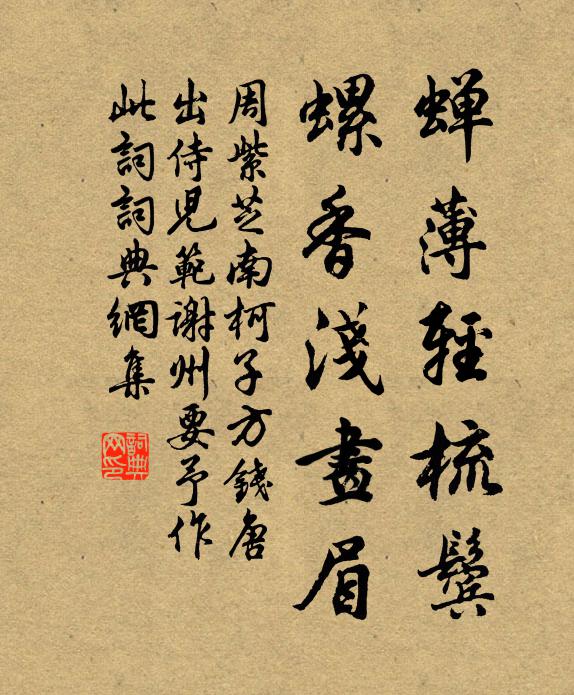 蝉薄輕梳鬢
螺香淺畫眉
周紫芝南柯子方錢唐
出侍兒範謝州要予作
此詞詞典網集
詞典
网印